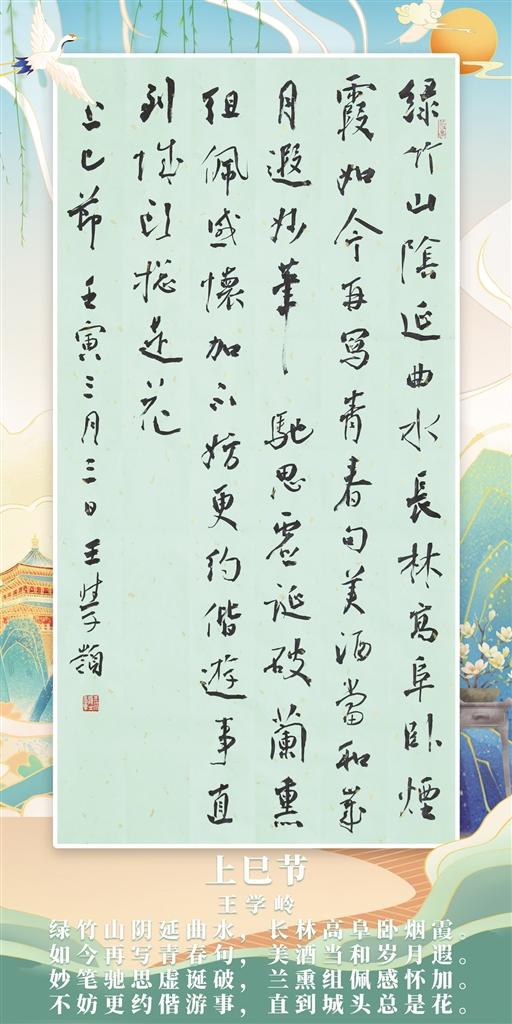 绿竹山陰延曲水長林高阜卧煙
霞如今再寫青春句美酒當和歲
月遐妙筆馳思虛誕破蘭熏
组佩感懷加不妨更约偕遊事直
到城頭摠是花
上巳節 壬寅三月三日 王學嶺
上巳节
王学岭
绿竹山阴延曲水，长林高阜卧烟霞。
如今再写青春句，美酒当和岁月遐。
妙笔驰思虚诞破，兰熏组佩感怀加。
不妨更约偕游事，直到城头总是花。